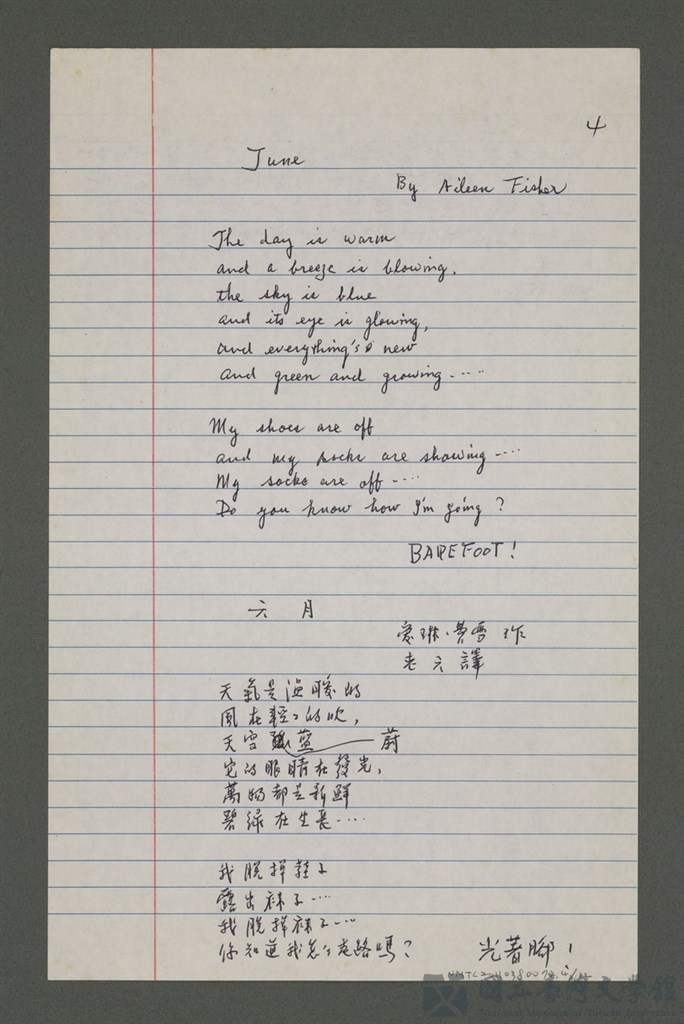 4
June
By Aileen Fisher
The day is warm
and a breeze is blowing,
the sky is blue
and its eye is glowing,
and everything's new
and green and growing.....
My shoes are off
and my socks are showing....
My socks are off....
Do you know how I'm going?
BAREFOOT!
六月
愛琳·費雪 作
老六譯
天氣是溫暖的
風在輕輕的吹,
天空 蔚藍
它的眼睛在發光,
萬物都是新鮮
碧綠在生長....
我脫掉鞋子
露出袜子....
我脫掉袜子....
你知道我怎么走路嗎?
光著腳!
國立臺灣文學館
National Museum of Taiwan Literature